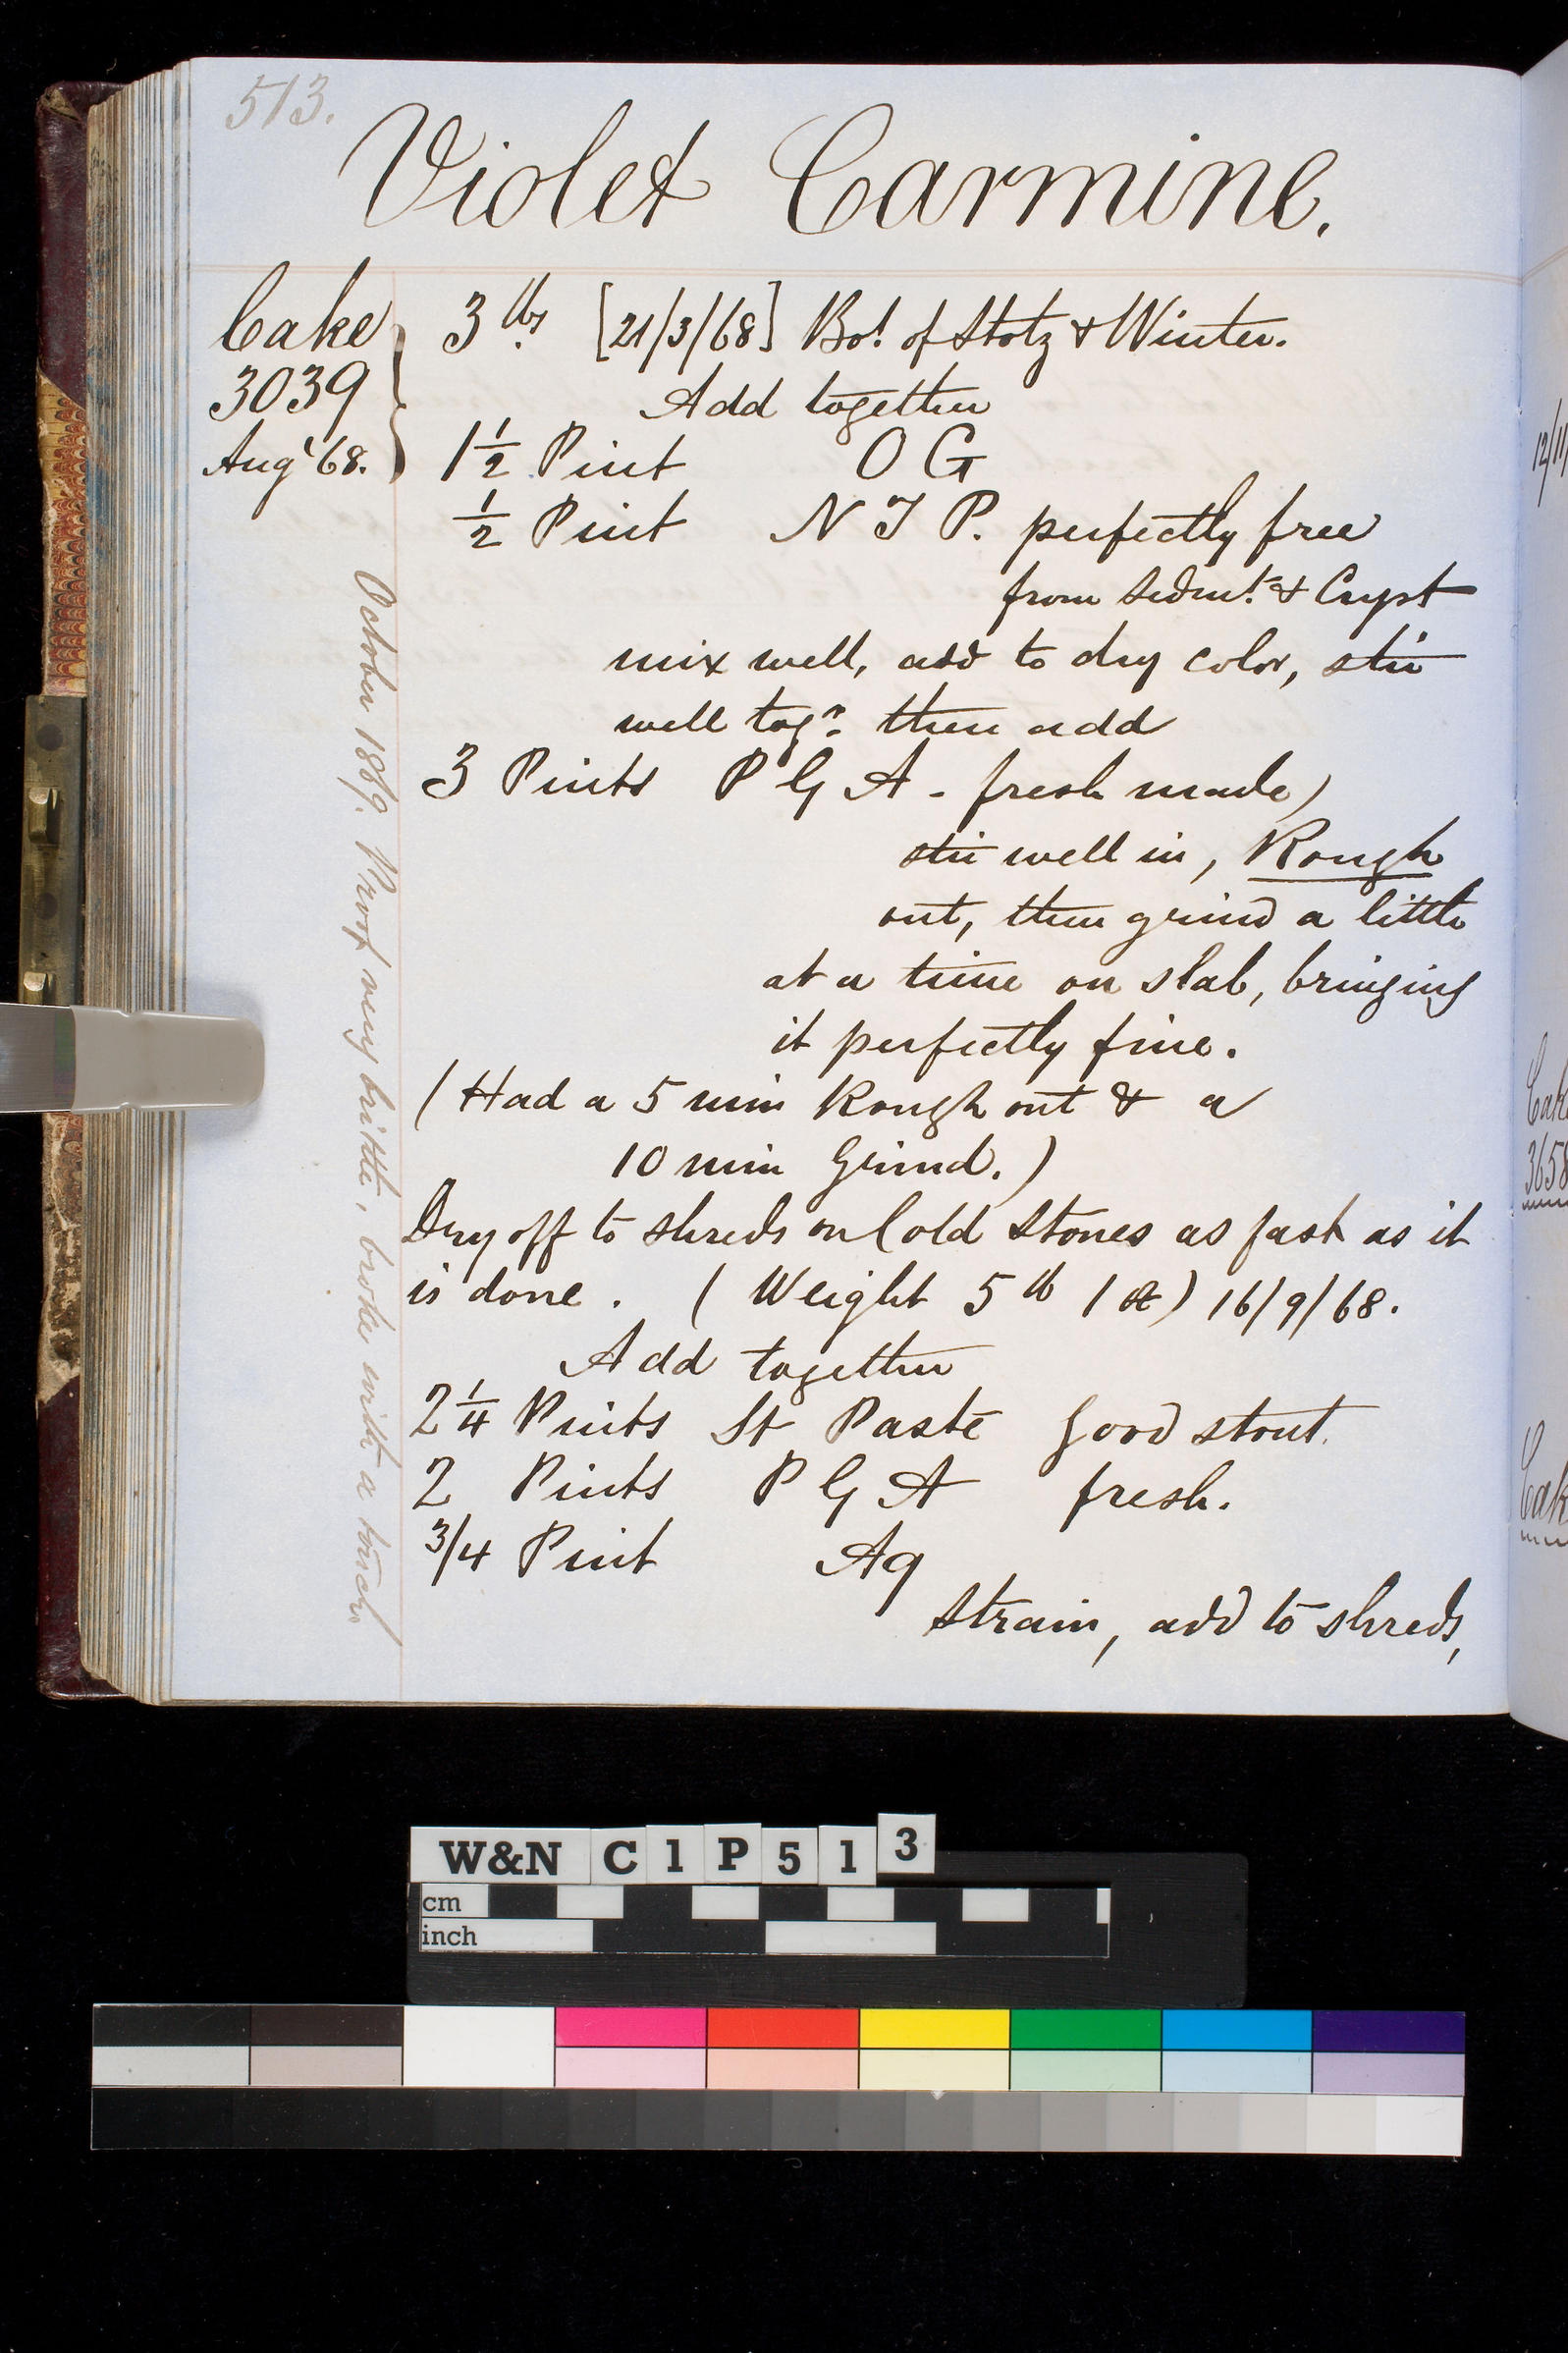 513.
Violet Carmine.
Cake
3039
Aug '68.
3 lbs [21/3/68] Bot. of Stotz & Winter.
Add together
1 1/2 Pint O G
1/2 Pint N T P. perfectly free
from Sedmt. & Cryst
mix well, add to dry color, stir
well togr. then add
3 Pints P G A - fresh made)
stir well in, Rough
out, then grind a little
at a time on slab, bringing
it perfectly fine.
(Had a 5 min Rough out & a
10 min Grind.)
Dry off to shreds on Cold Stones as fast as it
is done. (Weight 5 lb 1 oz) 16/9/68.
Add together
2 1/4 Pints St Paste good stout.
2 Pints P G A fresh.
3/4 Pint Aq
Strain, add to shreds,
October 1869. Proof very brittle, broke with a touch
12/11
Cak
3658
Cak
W&N C1P513
cm
inch